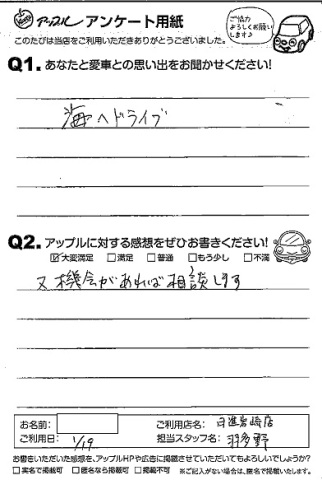 アップル アンケート用紙
ご協力
よろしくお願い
します♪
このたびは当店をご利用いただきありがとうございました。
Q1. あなたと愛車との思い出をお聞かせください!
海へドライブ
Q2. アップルに対する感想をぜひお書きください!
☑大変満足 □満足 □普通 □もう少し □不満
又機会があれば相談します
お名前:
ご利用店名: 日進岩崎店
ご利用日: 1/19
担当スタッフ名: 羽多野
お書きいただいた感想を、アップルHPや広告に掲載させていただいてもよろしいでしょうか?
□実名で掲載可 □匿名なら掲載可 □掲載不可 ※ご記入がない場合は、匿名で掲載いたします。